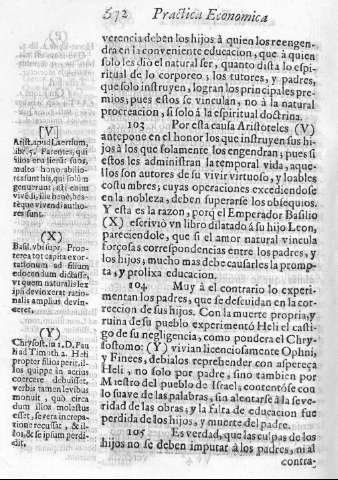 572 Practica Economica
verencia deben los hijos à quien los reengen-
dra en la conveniente educacion, que à quien
solo les diò el natural ser, quanto dista lo espi-
ritual de lo corporeo; los tutores, y padres,
que solo instruyen, logran los principales pre-
mios; pues estos se vinculan, no à la natural
procreacion, si solo à la espiritual doctrina.
103 Por esta causa Aristoteles (V)
antepone en el honor los que instruyen sus hi-
jos à los que solamente los engendran; pues si
estos les administran la temporal vida, aque-
llos son autores de su vivir virtuoso, y loables
costumbres, cuyas operaciones excediendose
en la nobleza, deben superarse los obsequios.
Y esta es la razon, porq el Emperador Basilio
(X) escriviò vn libro dilatado à su hijo Leon,
pareciendole, que si el amor natural vincula
forçosas correspondencias entre los padres, y
los hijos; mucho mas debe causarles la promp-
ta, y prolixa educacion.
104 Muy à el contrario lo experi-
mentan los padres, que se descuidan en la cor-
reccion de sus hijos. Con la muerte propria, y
ruina de su pueblo experimentò Heli el casti-
go de su negligencia, como pondera el Chry-
sostomo: (Y) vivian licenciosamente Ophni,
y Finees, debialos reprehender con aspereça
Heli, no solo por padre, sino tambien por
Maestro del pueblo de Israel, contentòse con
lo suave de las palabras, sin alentarse à la seve-
ridad de las obras; y la falta de educacion fue
perdida de los hijos, y muerte del padre.
105 Es verdad, que las culpas de los
hijos no se deben imputar à los padres, ni al
contra-
[V]
Arist. apud Laersum,
lib. 5. Parentes, qui
filios erudierũt suos,
multo honorabilio-
res sunt his, qui solum
genuerunt: isti enim
vivẽdi, illi bene, bea-
teque vivendi autho-
res sunt.
(X)
Basil. vbi supr. Prop-
terea tot capita exor-
tationum ad filium
edocendum dicasse,
vt quem naturalis lex
ipsi devinxerat ratio-
nalis amplius devin-
ceret.
(Y)
Chrysost. in 1. D. Pau
li ad Timoth. 2. Heli
propter filios perijt. il-
los quippe in acrius
coercere debuisset,
verbis tamen levibus
monuit, quò circa
dum illos molestus
esset, severa increpa-
tione recussat, & il-
los, & se ipsum perdi-
dit.